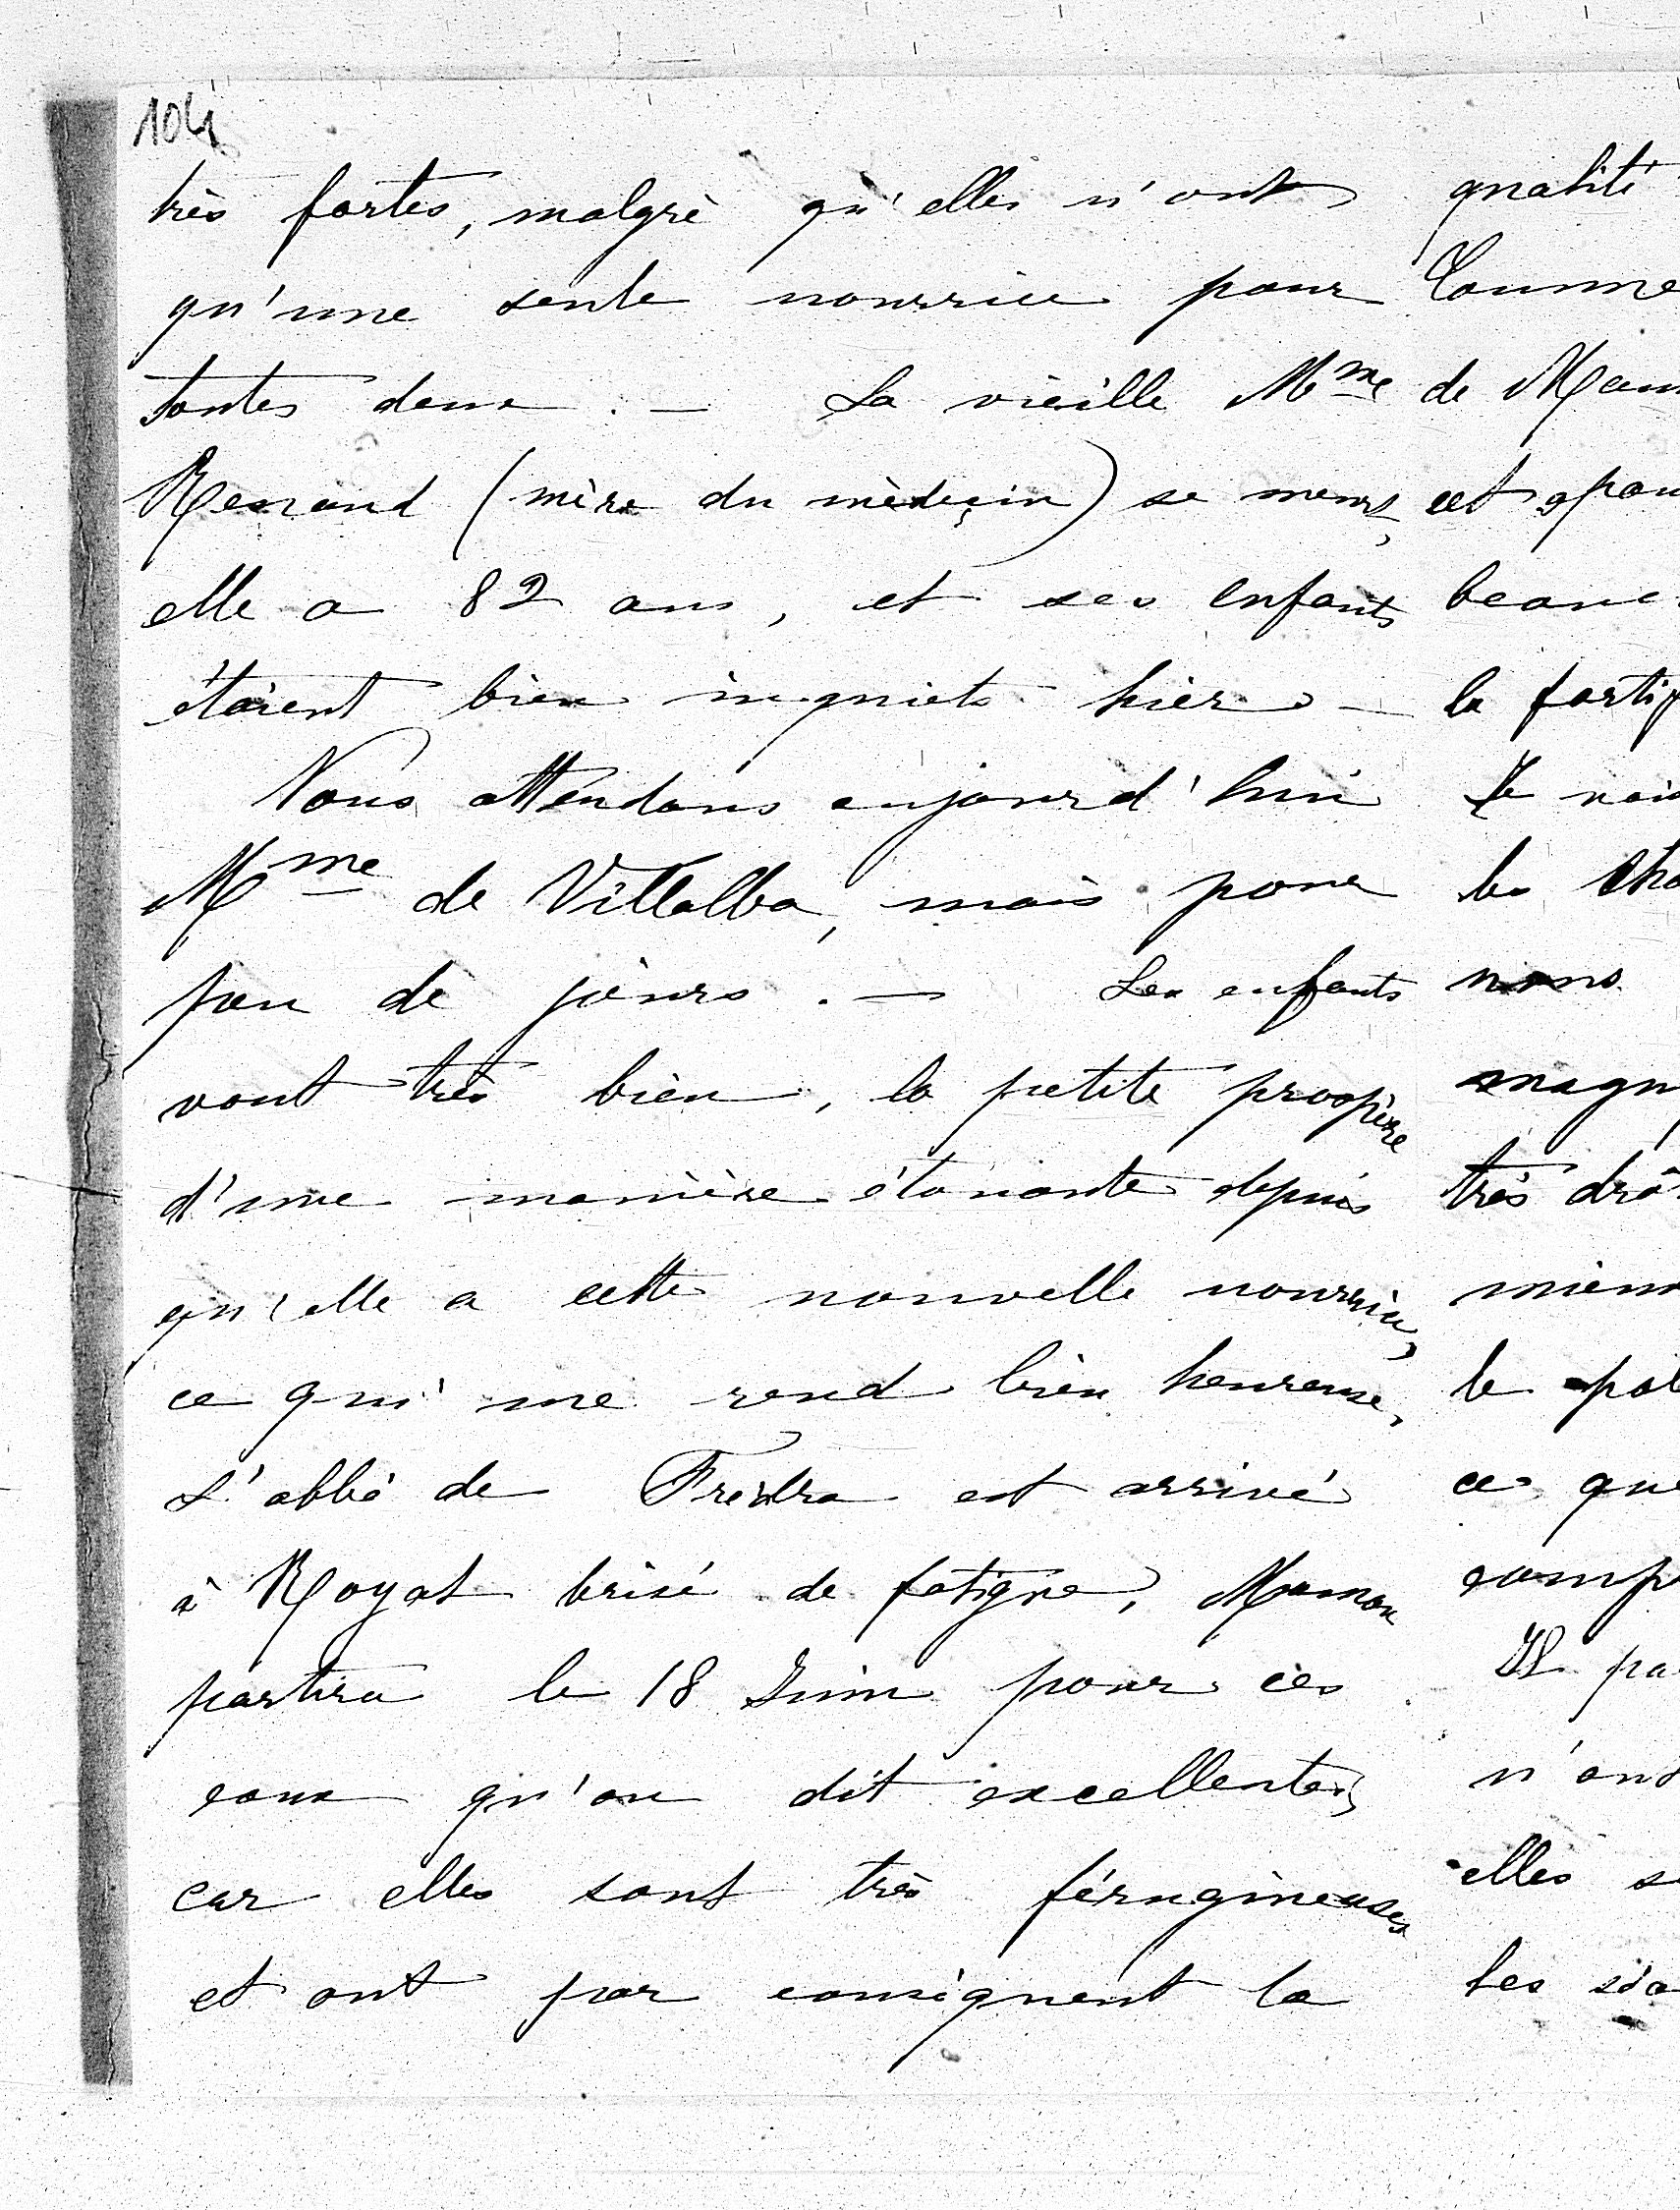 104
très fortes, malgrè qu'elles n'ont
qu'une seule nourrice pour
toutes deux. — La vieille Mme
(mère du mèdeçin) se meurt,
elle a 82 ans, et ses enfants
étaient bien inquiets hier —
Nous attendons aujourd'hui
Mme de Villalba, mais pour
peu de jours. — Les enfants
vont très bien, la petite prospère
d'une manière étonante depuis
qu'elle a cette nouvelle nourrice,
ce qui me rend bien heureuse,
L'abbé de est arrivé
à Royat brisé de fatigue, Maman
partira le 18 Juin pour ces
eaux qu'on dit excellentes,
car elles sont très férugineuses
et ont par conséquent la
qualité
de
et
la
Je
les
nous
très
le
ce que
Il
elles
les